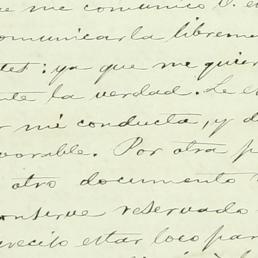 me comunicó V. e
omunicarla libreme
tes: ya que me quier
te la verdad. Le e
mi conducta, y d
orable. Por otra p
otro documento
onserve reservado
ecito estar loco par